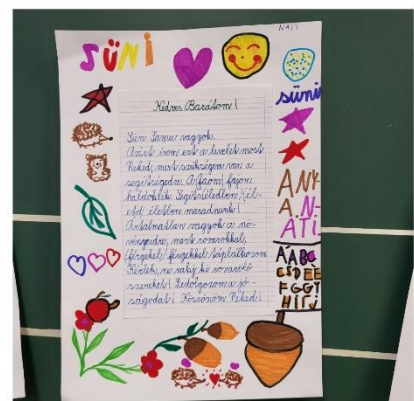 NATI
SÜNI
süni
Kedves Barátom!
Sün Samu vagyok.
Azért írom ezt a levelet most
Neked, mert szükségem van a
segítségedre. A fajom
haldoklik. Segítségeddel
életben maradnánk!
Ártalmatlan vagyok a nö-
vényzetre, mert rovarokkal,
férgekkel táplálkozom.
Kérlek, ne rakj ki rovarölő
szereket! Ledolgozom a jó-
ságodat! Köszönöm Neked!
ANY
A N
ATI
AÁBC
CSDEÉ
FGGY
HIÍJ